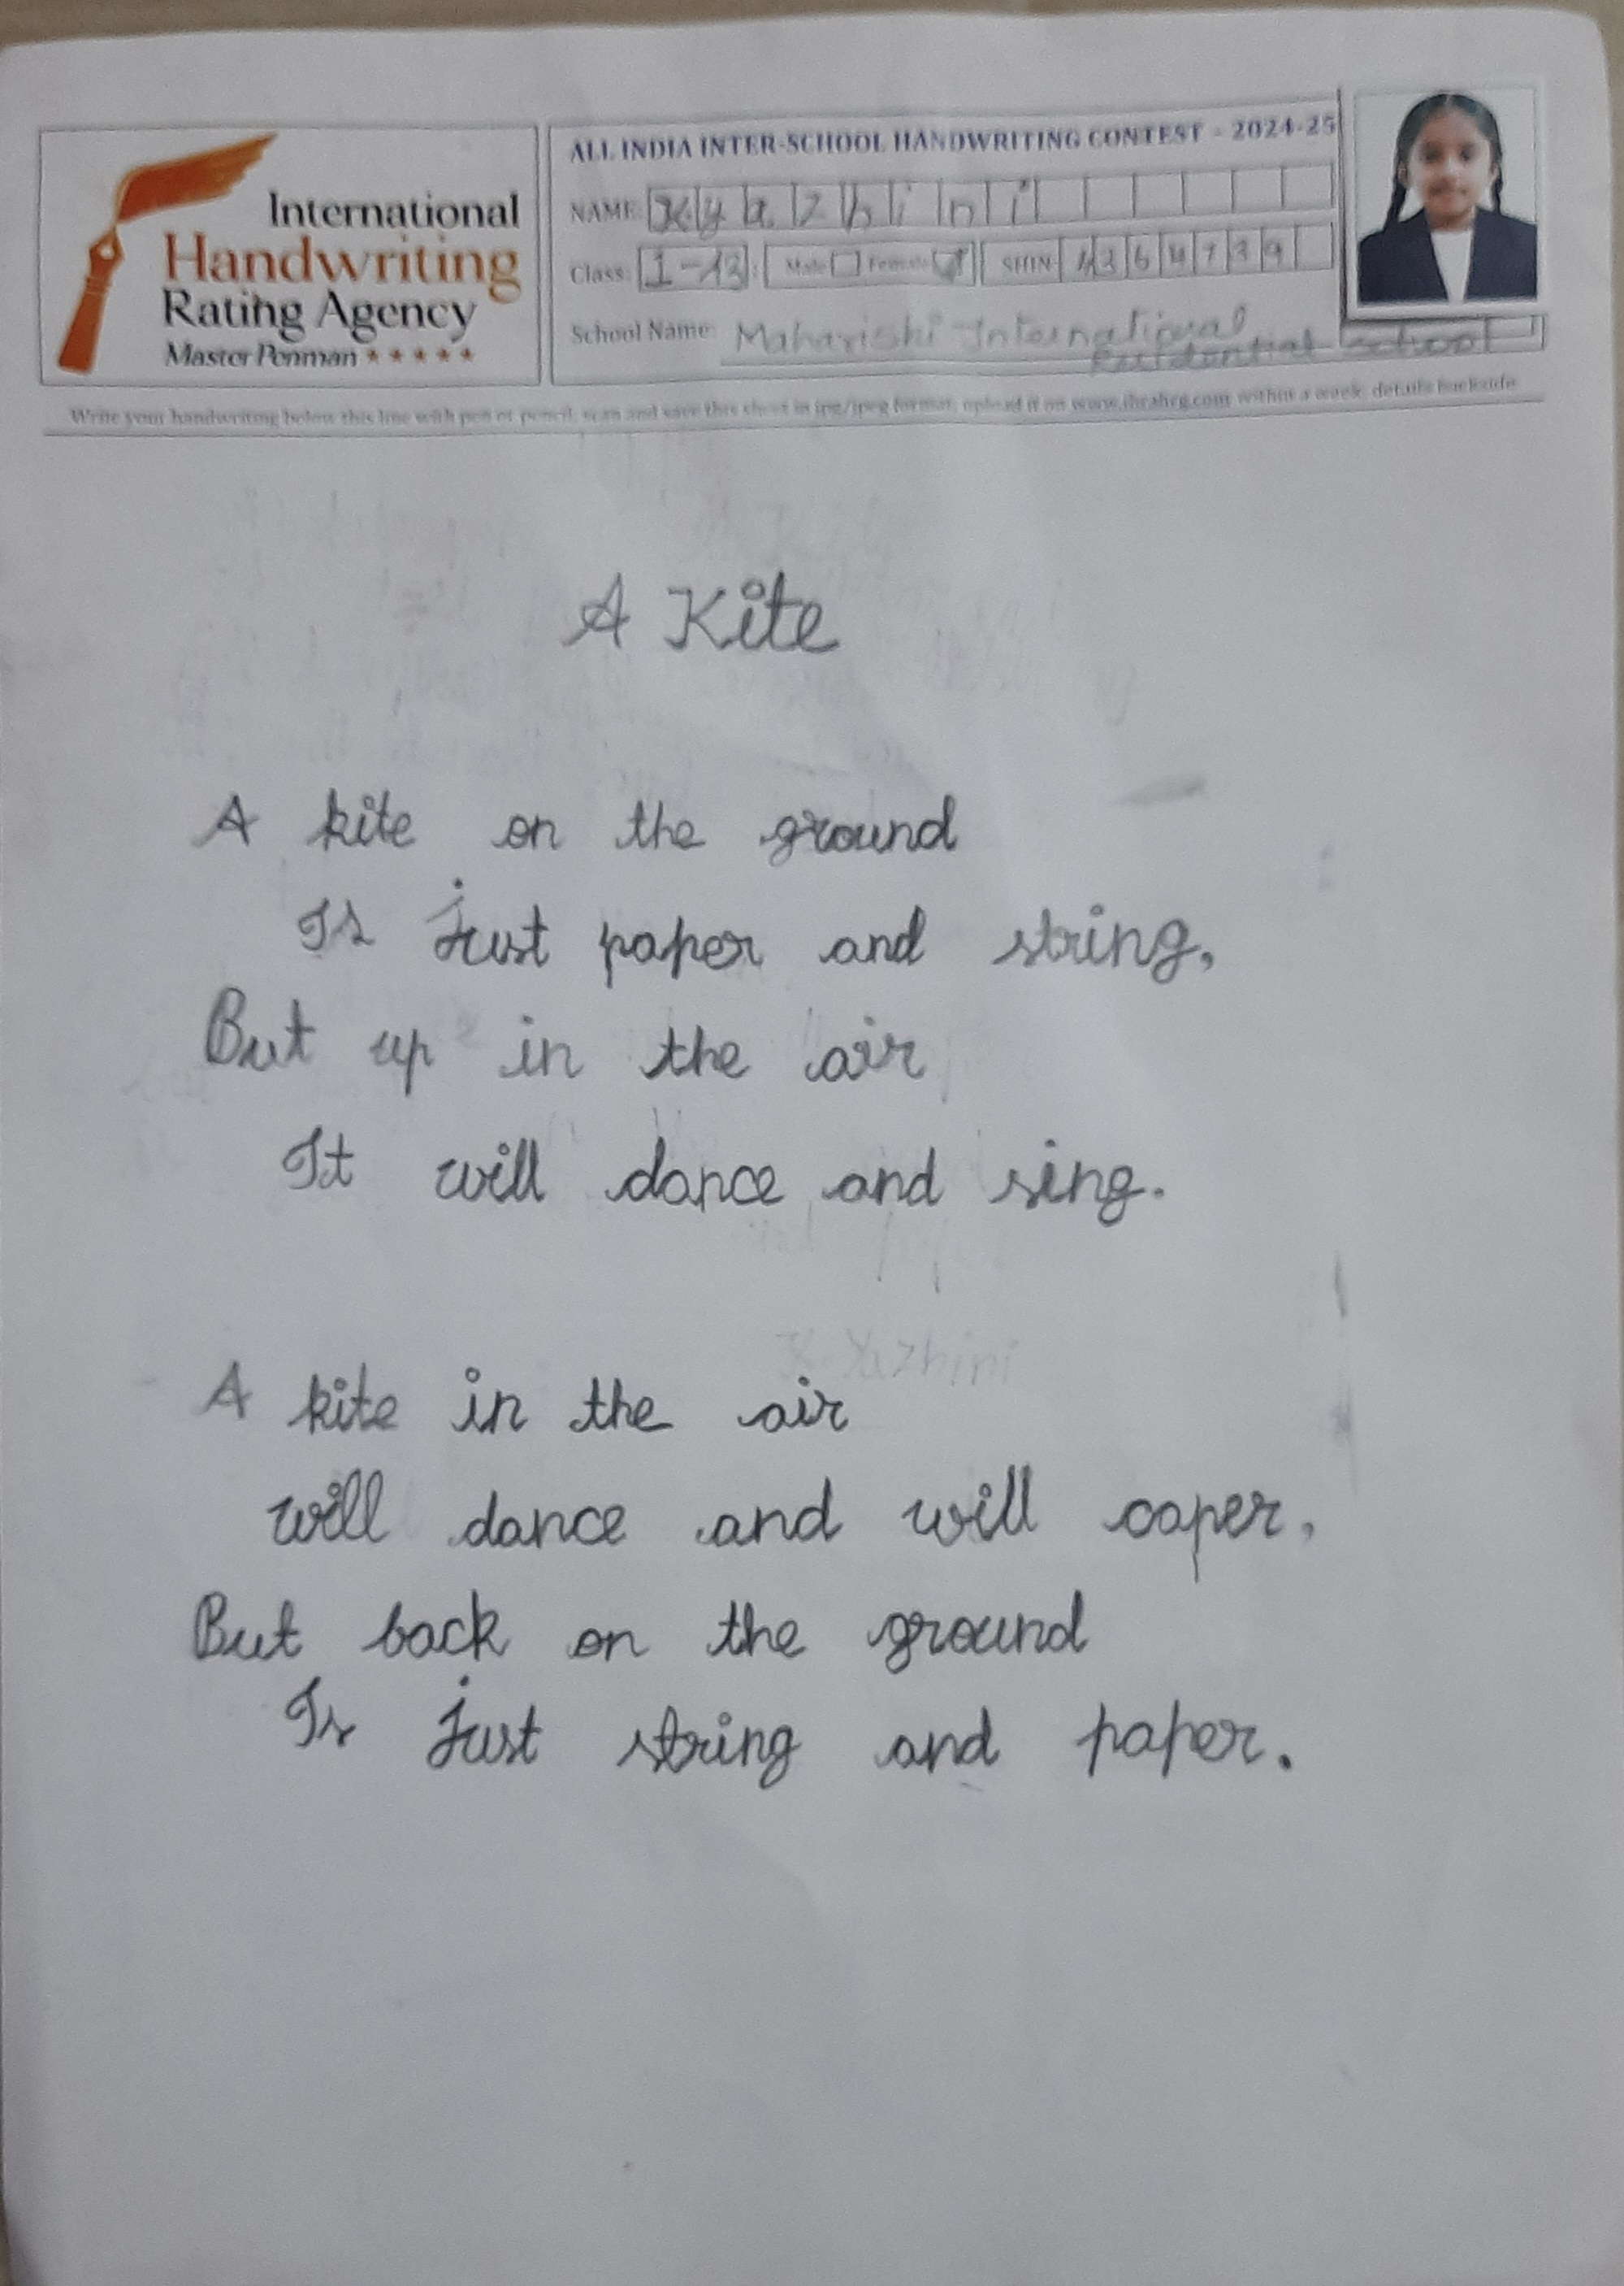 International
Handwriting
Rating Agency
Master Penman
ALL INDIA INTER-SCHOOL HANDWRITING CONTEST - 2024-25
NAME: K.yazhini
Class: Male Female SHIN
School Name: Maharishi International
Residential School
Write your handwriting below this line with pen or pencil, scan and save this sheet in jpg/jpeg format, upload it on www.ihrahrg.com within a week, details backside
A Kite
A kite on the ground
Is just paper and string,
But up in the air
It will dance and sing.
K. Yazhini
A kite in the air
will dance and will caper,
But back on the ground
Is just string and paper.